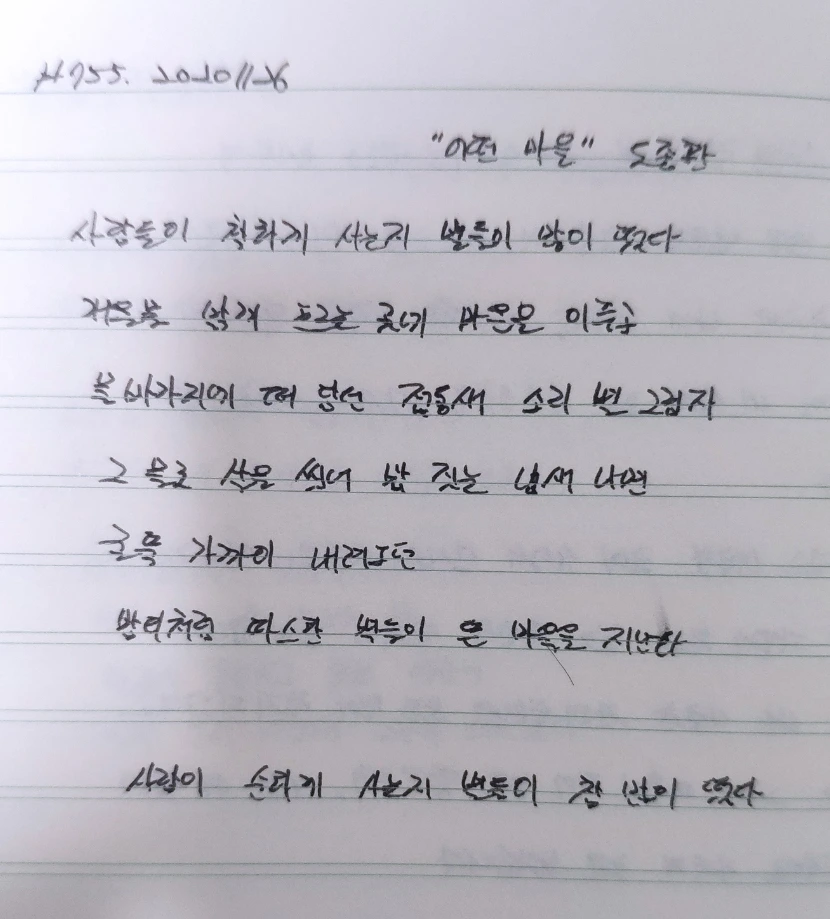 #755. 20201126
"어떤 마을" 도종환
사람들이 착하게 사는지 별들이 많이 떴다
개울물 맑게 흐르는 곳에 마을을 이루고
물바가지에 떠 담던 접동새 소리 별 그림자
그 물로 쌀을 씻어 밥 짓는 냄새 나면
굴뚝 가까이 내려오던
밥티처럼 따스한 별들이 뜬 마을을 지난다
사람이 순하게 사는지 별들이 참 많이 떴다